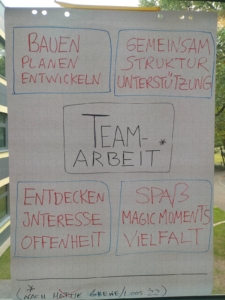 BAUEN
PLANEN
ENTWICKELN
GEMEINSAM
STRUKTUR
UNTERSTÜTZUNG
TEAM-
ARBEIT *
ENTDECKEN
INTERESSE
OFFENHEIT
SPAẞ
MAGIC MOMENTS
VIELFALT
(* NACH